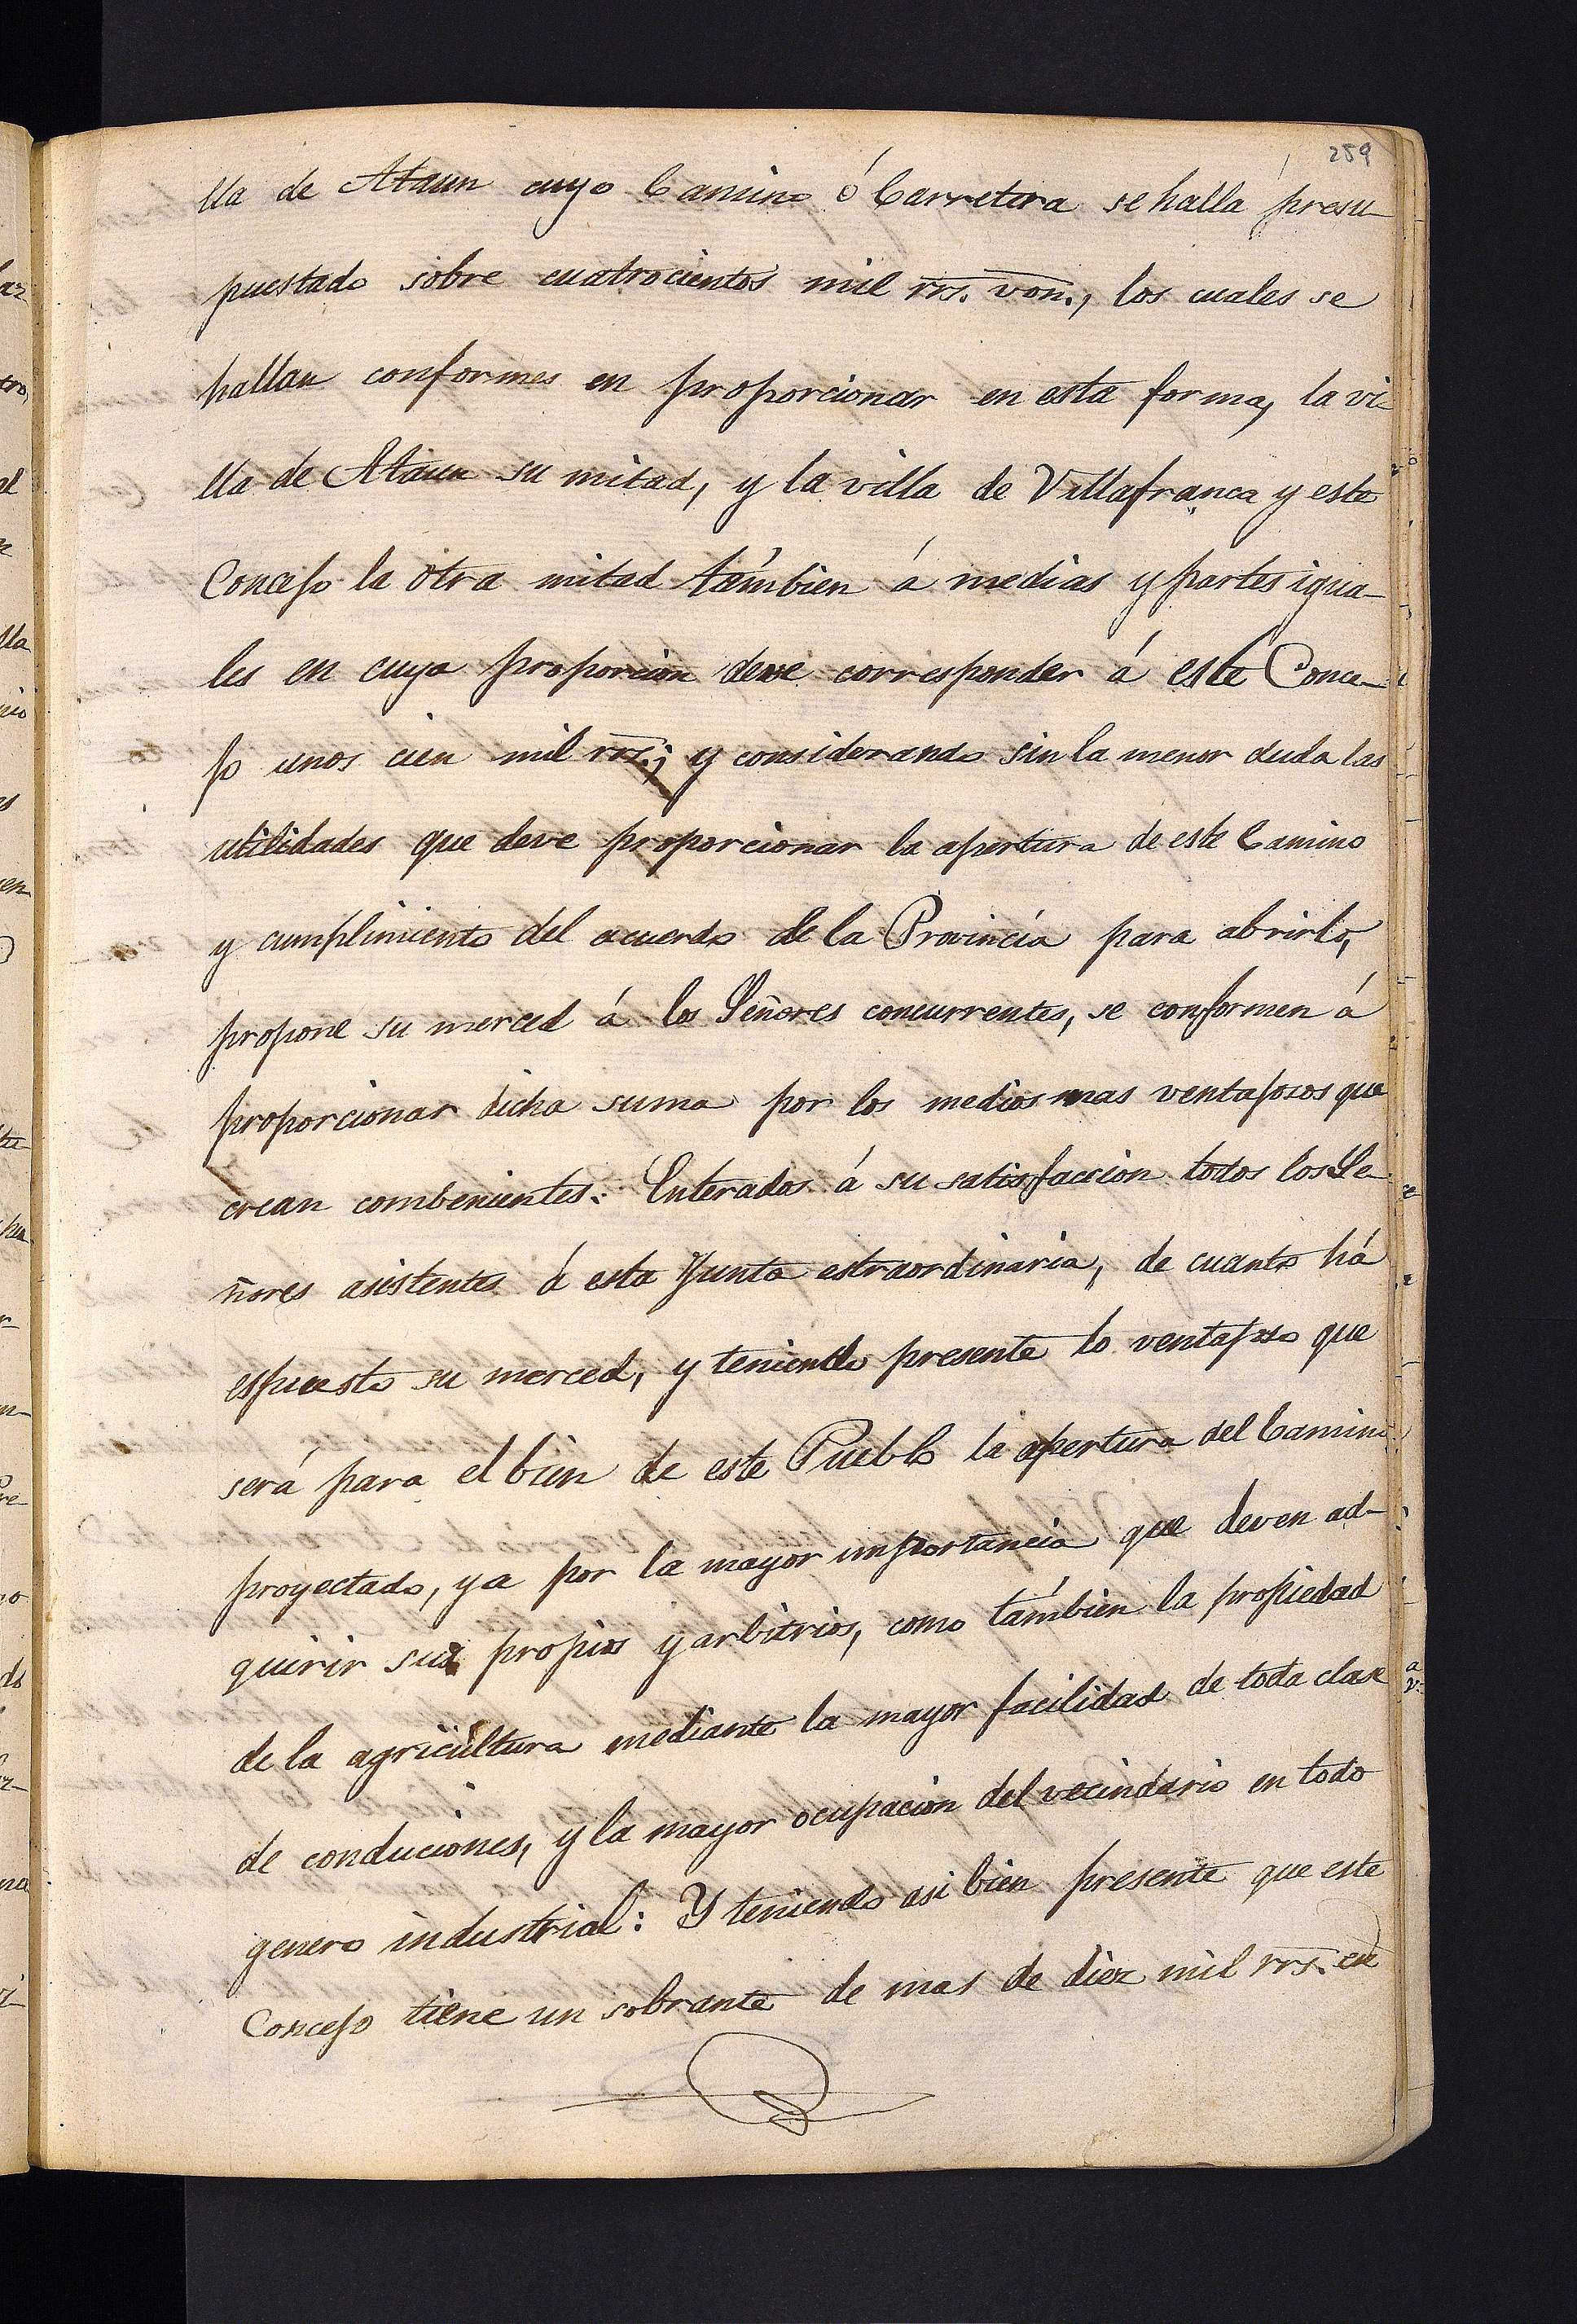 259
lla de Ataun cuyo Camino ó Carretera se halla presu-
puestado sobre cuatrocientos mil rrs. von., los cuales se
hallan conformes en proporcionar en esta forma, la vi-
lla de Ataun su mitad, y la villa de Villafranca y este
Concejo la otra mitad támbien á medias y partes igua-
les en cuya proporcion deve corresponder á este Conce-
jo unos cien mil rrs.; y considerando sin la menor duda las
utilidades que deve proporcionar la apertura de este Camino
y cumplimiento del acuerdo de la Provincia para abrirlo,
propone su merced á los Señores concurrentes, se conformen á
proporcionar dicha suma por los medios mas ventajosos que
crean combenientes: Enterados á su satisfaccion todos los Se-
ñores asistentes á esta Junta estraordinaria, de cuanto há
espuesto su merced, y teniendo presente lo ventajoso que
será para el bien de este Pueblo la apertura del Camino
proyectado, ya por la mayor importancia que deven ad-
quirir sus propios y arbitrios, como támbien la propiedad
de la agricultura mediante la mayor facilidad de toda clase
de conduciones, y la mayor ocupacion del vecindario en todo
genero industrial: Y teniendo asi bien presente que este
Concejo tiene un sobrante de mas de diez mil rrs. en